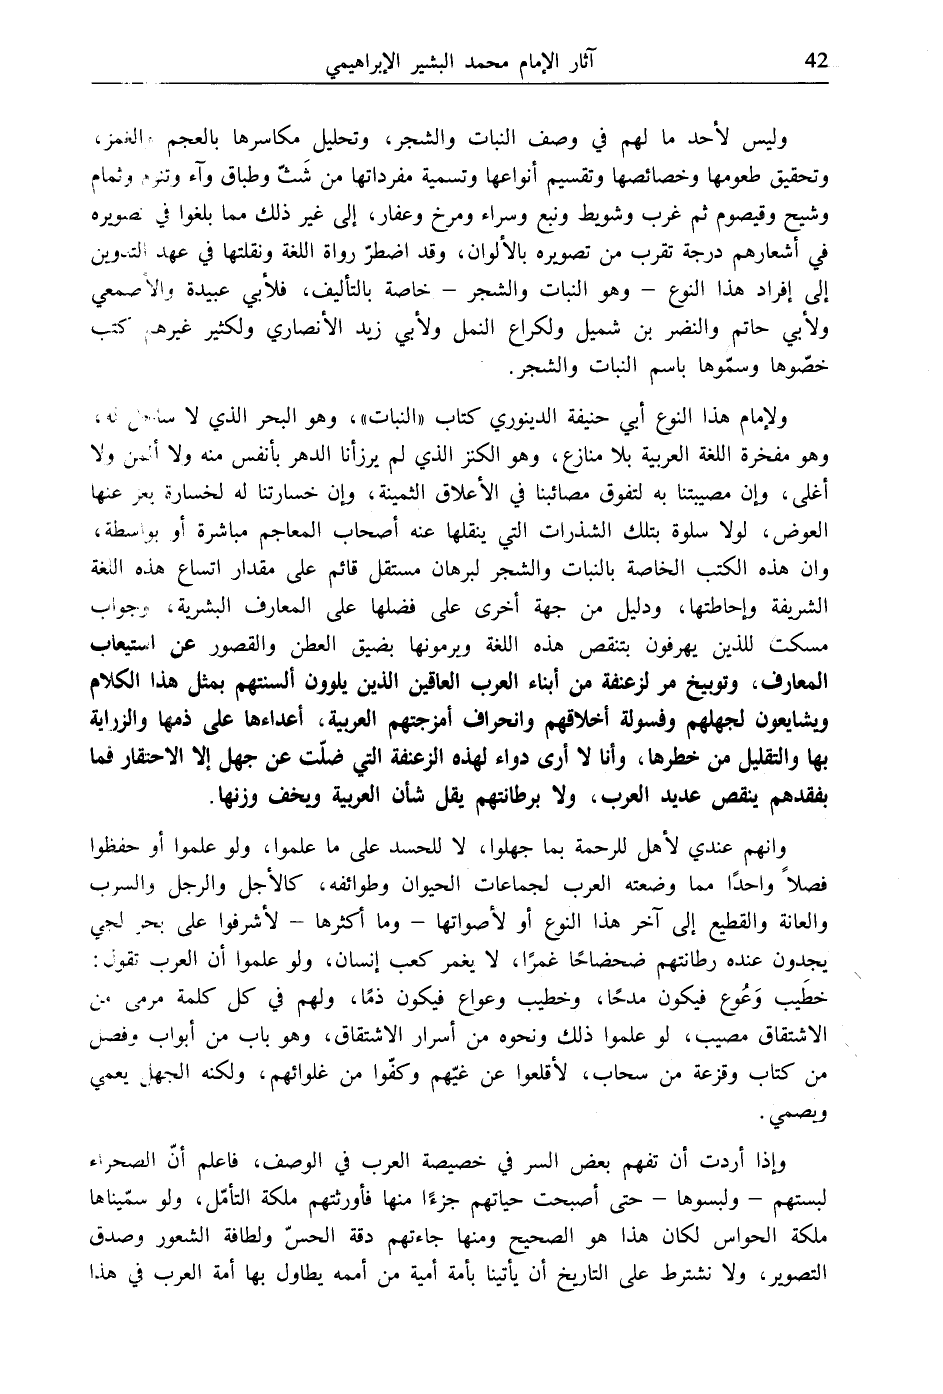 42
آثار الإمام محمد البشير الإبراهيمي
وليس لأحد ما لهم في وصف النبات والشجر، وتحليل مكاسرها بالعجم والغمز،
وتحقيق طعومها وخصائصها وتقسيم أنواعها وتسمية مفرداتها من شَثّ وطباق وآء وتنوم وثمام
وشيح وقيصوم ثم غرب وشويط ونبع وسراء ومرخ وعفار، إلى غير ذلك مما بلغوا في تصويره
في أشعارهم درجة تقرب من تصويره بالألوان، وقد اضطرّ رواة اللغة ونقلتها في عهد التدوين
إلى إفراد هذا النوع – وهو النبات والشجر – خاصة بالتأليف، فلأبي عبيدة والأصمعي
ولأبي حاتم والنضر بن شميل ولكراع النمل ولأبي زيد الأنصاري ولكثير غيرهم كتب
خصّوها وسمّوها باسم النبات والشجر.
ولإمام هذا النوع أبي حنيفة الدينوري كتاب «النبات»، وهو البحر الذي لا ساحل له،
وهو مفخرة اللغة العربية بلا منازع، وهو الكنز الذي لم يرزأنا الدهر بأنفس منه ولا أثمن ولا
أغلى، وإن مصيبتنا به لتفوق مصائبنا في الأعلاق الثمينة، وإن خسارتنا له لخسارة يعز عنها
العوض، لولا سلوة بتلك الشذرات التي ينقلها عنه أصحاب المعاجم مباشرة أو بواسطة،
وان هذه الكتب الخاصة بالنبات والشجر لبرهان مستقل قائم على مقدار اتساع هذه اللغة
الشريفة وإحاطتها، ودليل من جهة أخرى على فضلها على المعارف البشرية، وجواب
مسكت للذين يهرفون بتنقص هذه اللغة ويرمونها بضيق العطن والقصور عن استيعاب
المعارف، وتوبيخ مر لزعنفة من أبناء العرب العاقين الذين يلوون ألسنتهم بمثل هذا الكلام
ويشايعون لجهلهم وفسولة أخلاقهم وانحراف أمزجتهم العربية، أعداءها على ذمها والزراية
بها والتقليل من خطرها، وأنا لا أرى دواء لهذه الزعنفة التي ضلّت عن جهل إلا الاحتقار فما
بفقدهم ينقص عديد العرب، ولا برطانتهم يقل شأن العربية ويخف وزنها.
وانهم عندي لأهل للرحمة بما جهلوا، لا للحسد على ما علموا، ولو علموا أو حفظوا
فصلاً واحدًا مما وضعته العرب لجماعات الحيوان وطوائفه، كالأجل والرجل والسرب
والعانة والقطيع إلى آخر هذا النوع أو لأصواتها – وما أكثرها – لأشرفوا على بحر لجي
يجدون عنده رطانتهم ضحضاحًا غمرًا، لا يغمر كعب إنسان، ولو علموا أن العرب تقول:
خطَيب وَعُوع فيكون مدحًا، وخطيب وعواع فيكون ذمًا، ولهم في كل كلمة مرمى من
الاشتقاق مصيب، لو علموا ذلك ونحوه من أسرار الاشتقاق، وهو باب من أبواب وفصل
من كتاب وقزعة من سحاب، لأقلعوا عن غيّهم وكفّوا من غلوائهم، ولكنه الجهل يعمي
ويصمي.
وإذا أردت أن تفهم بعض السر في خصيصة العرب في الوصف، فاعلم أنّ الصحراء
لبستهم – ولبسوها – حتى أصبحت حياتهم جزءًا منها فأورثتهم ملكة التأمّل، ولو سمّيناها
ملكة الحواس لكان هذا هو الصحيح ومنها جاءتهم دقة الحسّ ولطافة الشعور وصدق
التصوير، ولا نشترط على التاريخ أن يأتينا بأمة أمية من أممه يطاول بها أمة العرب في هذا